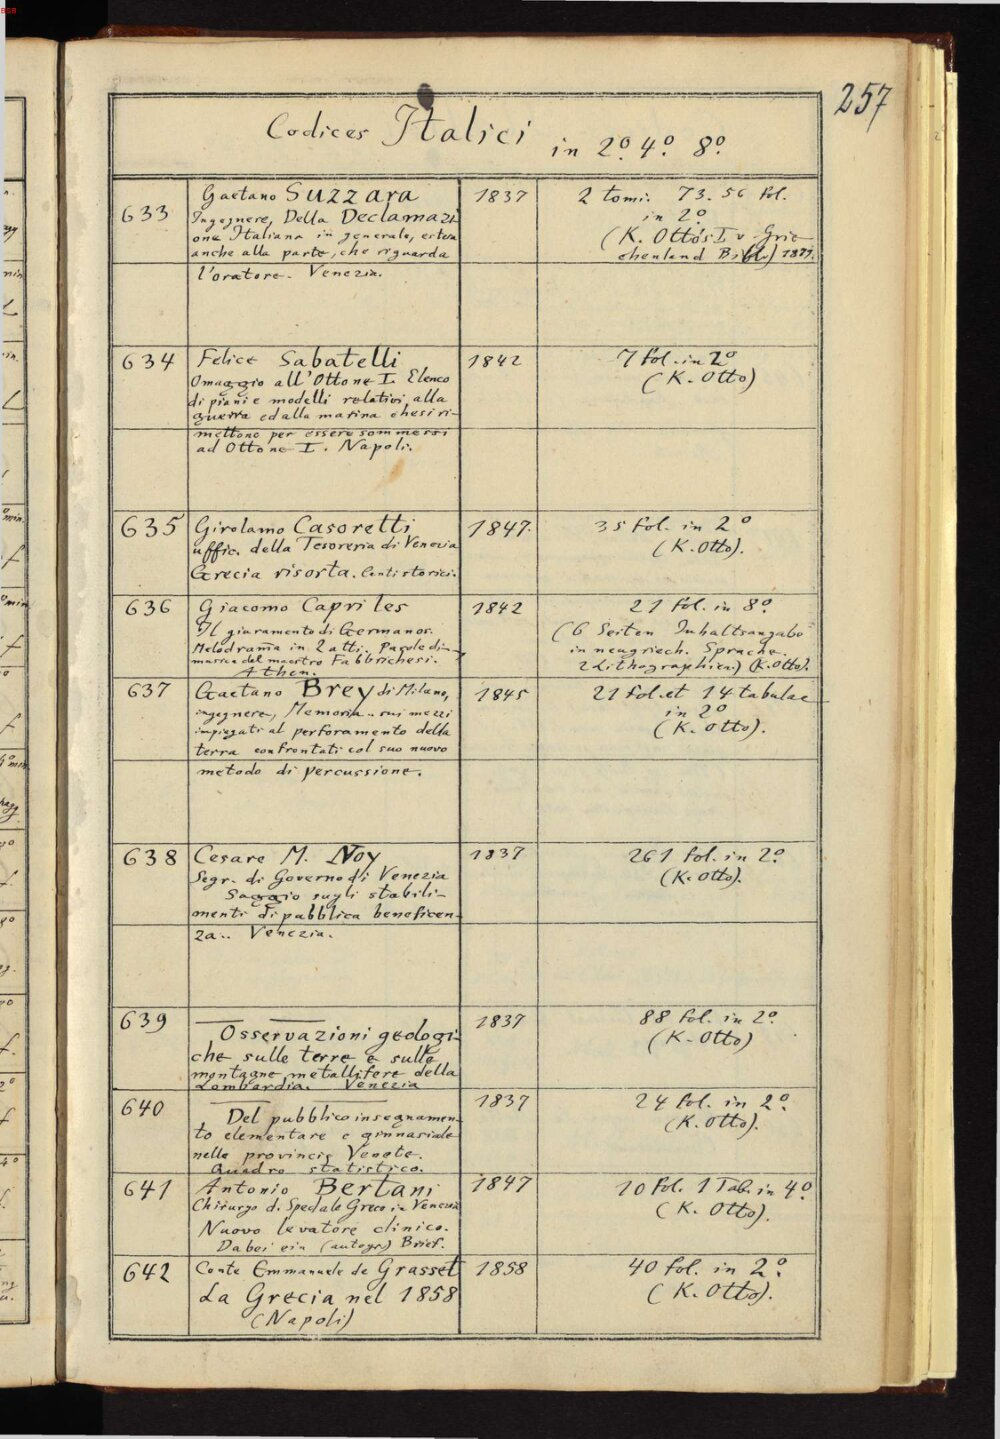 257
Codices Italici in 2º. 4º. 8º.
633
Gaetano Suzzara
Ingegnere, Della Declamazi
one Italiana in generale, estesa
anche alla parte, che riguarda
l'oratore. Venezia.
1837
2 tomi. 73. 56 fol.
in 2º
(K. Otto's I v. Grie
chenland Bibl.)
634
Felice Sabatelli
Omaggio all'Ottone I. Elenco
di piani e modelli relativi alla
guerra ed alla marina che si ri-
mettono per essere sommessi
ad Ottone I. Napoli.
1842
7 fol. in 2º
(K. Otto)
635
Girolamo Casoretti
uffic. della Tesoreria di Venezia
Grecia risorta. Canti storici.
1847.
35 fol. in 2º
(K. Otto).
636
Giacomo Capriles
Il giuramento di Germanos.
Melodrama in 2 atti. Parole di
musica del maestro Fabbrichesi.
Athen.
1842
21 fol. in 8º.
(6 Seiten Inhaltsangabe
in neugriech. Sprache.
2 Lithographien.) (K. Otto).
637
Gaetano Brey di Milano,
ingegnere, Memoria sui mezzi
impiegati al perforamento della
terra confrontati col suo nuovo
metodo di percussione.
1845
21 fol. et 14 tabulae
in 2º
(K. Otto).
638
Cesare M. Noy
Segr. di Governo di Venezia
Saggio sugli stabili-
menti di pubblica beneficen-
za.. Venezia.
1837
261 fol. in 2º.
(K. Otto).
639
Osservazioni geologi-
che sulle terre e sulle
montagne metallifere della
Lombardia. Venezia
1837
88 fol. in 2º.
(K. Otto)
640
Del pubblico insegnamen-
to elementare e ginnasiale
nelle provincie Venete.
Quadro statistico.
1837
24 fol. in 2º.
(K. Otto).
641
Antonio Bertani
Chirurgo d. Spedale Greco in Venezia
Nuovo levatore clinico.
Dabei ein (autogr.) Brief.
1847
10 fol. 1 Tab. in 4º
(K. Otto).
642
Conte Emmanuele de Grasset
La Grecia nel 1858
(Napoli)
1858
40 fol. in 2º.
(K. Otto).